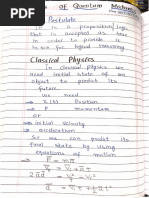 OF Quantum
Mechanics
Postulate
It is a proposition log
that is accepted as true
in order to provide
basis for logical reasoning
Classical Physics
In classical physics we
need initial state of an
object to predict its
future.
we need
⇒ x(t) Position
⇒ P momentum
or
⇒ initial velocity
⇒ acceleration
So we can predict its
final state by using
equations of motion
F = ma